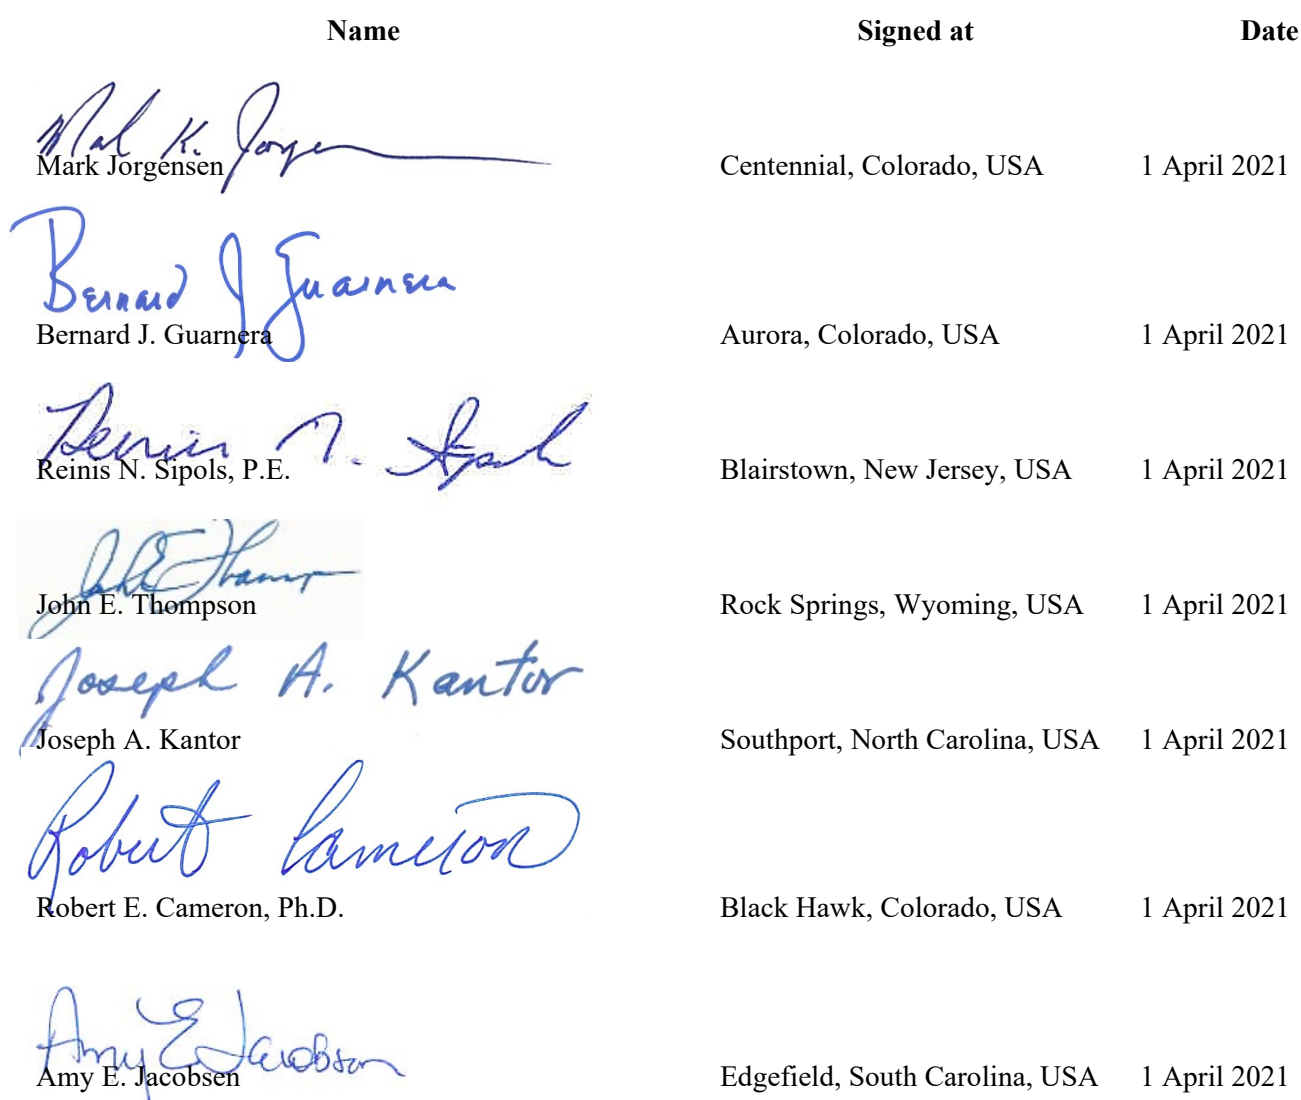 Name Signed at Date
Mark K. Jorgen
Mark Jorgensen Centennial, Colorado, USA 1 April 2021
Bernard J Guarnera
Bernard J. Guarnera Aurora, Colorado, USA 1 April 2021
Reinis N. Sipols
Reinis N. Sipols, P.E. Blairstown, New Jersey, USA 1 April 2021
John E Thomp
John E. Thompson Rock Springs, Wyoming, USA 1 April 2021
Joseph A. Kantor
Joseph A. Kantor Southport, North Carolina, USA 1 April 2021
Robert Cameron
Robert E. Cameron, Ph.D. Black Hawk, Colorado, USA 1 April 2021
Amy E Jacobsen
Amy E. Jacobsen Edgefield, South Carolina, USA 1 April 2021